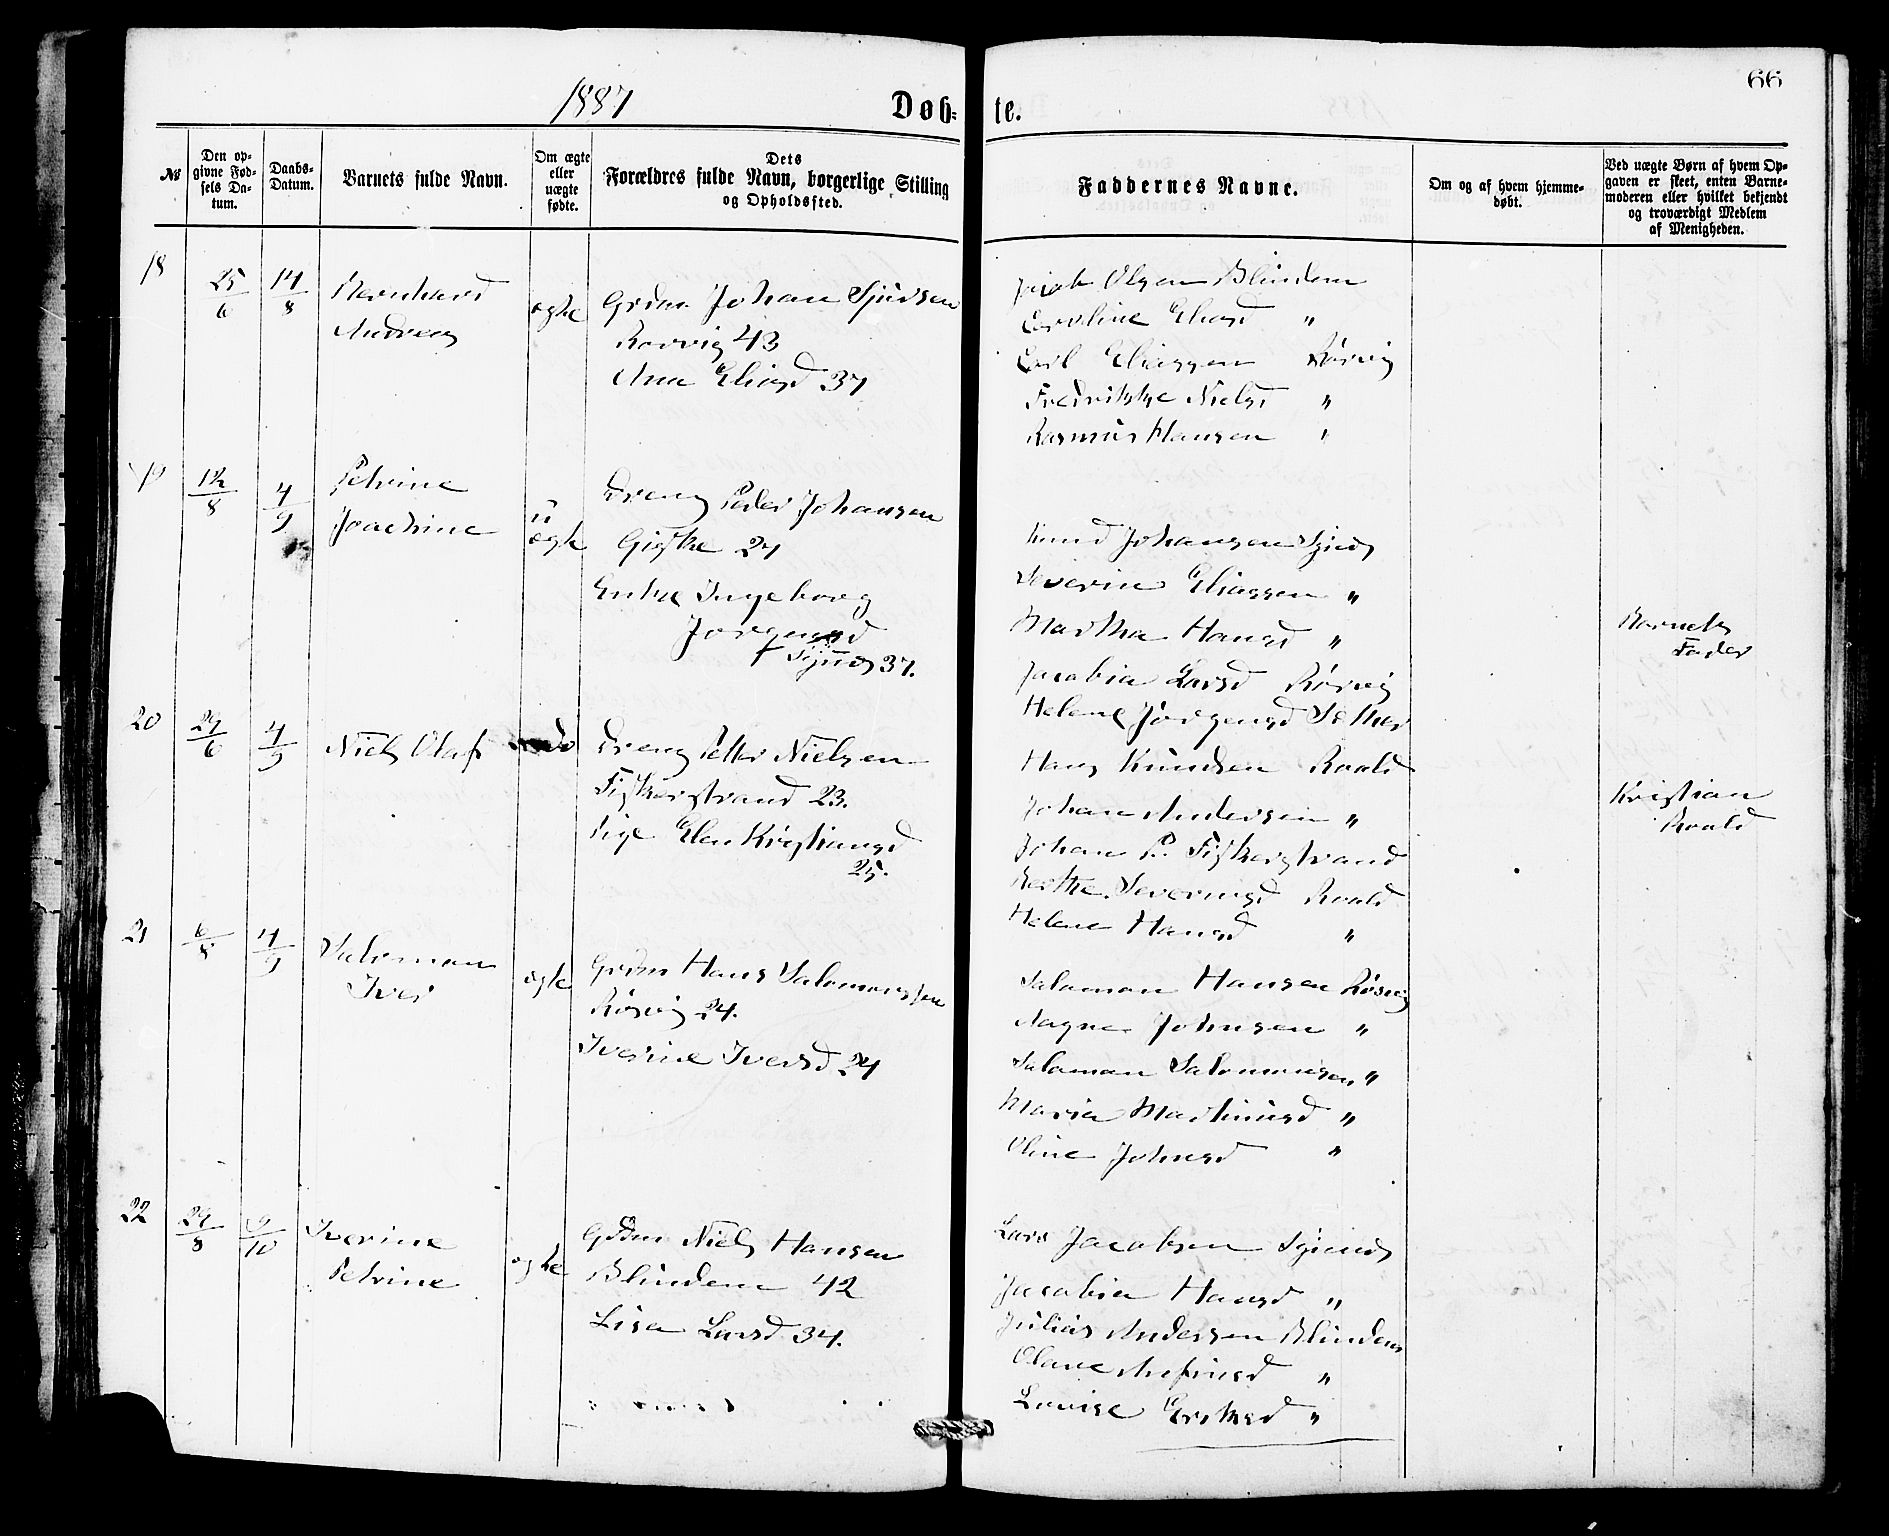 66
1887
Døb- te.
№
Den op-
givne Fød-
sels Da-
tum.
Daabs-
Datum.
Barnets fulde Navn.
Om ægte
eller
uægte
fødte.
Dets
Forældres fulde Navn, borgerlige Stilling
og Opholdsfted.
Faddernes Navne.
Om og af hvem hjemme-
døbt.
Ved uægte Børn af hvem Op-
gaven er skeet, enten Barne-
moderen eller hvilket bekjendt
og troværdigt Medlem
af Menigheden.
18
25/6
14/8
Bernhard
Andreas
ægte
Grdm Johan Sjursen
Rørvig 43
Ana Eliasd 37
Jacob Olsen Blindem
Caroline Eliasd "
Carl Eliassen Rørvig
Fredrikke Nielsd "
Rasmus Hansen "
19
12/8
4/9
Petrine
Joachine
u
ægte
Dreng Peder Johansen
Giske 24
Enke Ingeborg
Jørgensd
Synæs 37.
Knud Johansen Synæs
Severin Eliassen "
Martha Hansd "
Jacobia Larsd Rørvig
Helene Jørgensd Sæther
Barnets
Fader
20
29/6
4/9
Niels Olaf
do
Dreng Petter Nielsen
Fiskerstrand 23.
Pige Elen Kristiansd
25.
Hans Knudsen Roald
Johan Andersen "
Johan P. Fiskerstrand
Berthe Severinsd Roald
Helene Hansd "
Kristian
Roald
21
6/8
4/9
Salomon
Iver
ægte
Grdm Hans Salomonsen
Rørvig 24.
Iverine Iversd 24
Salomon Hansen Rørvig
Magne Johnsen "
Salomon Salomonsen "
Maria Martinusd "
Oline Johnsd "
22
29/8
9/10
Iverine
Petrine
ægte
Grdm Niels Hansen
Blindem 42
Lisa Larsd 34.
Lars Jacobsen Synæs
Jacobia Hansd "
Julius Andersen Blindem
Olave Anfinsd "
Lovise Eriksd "